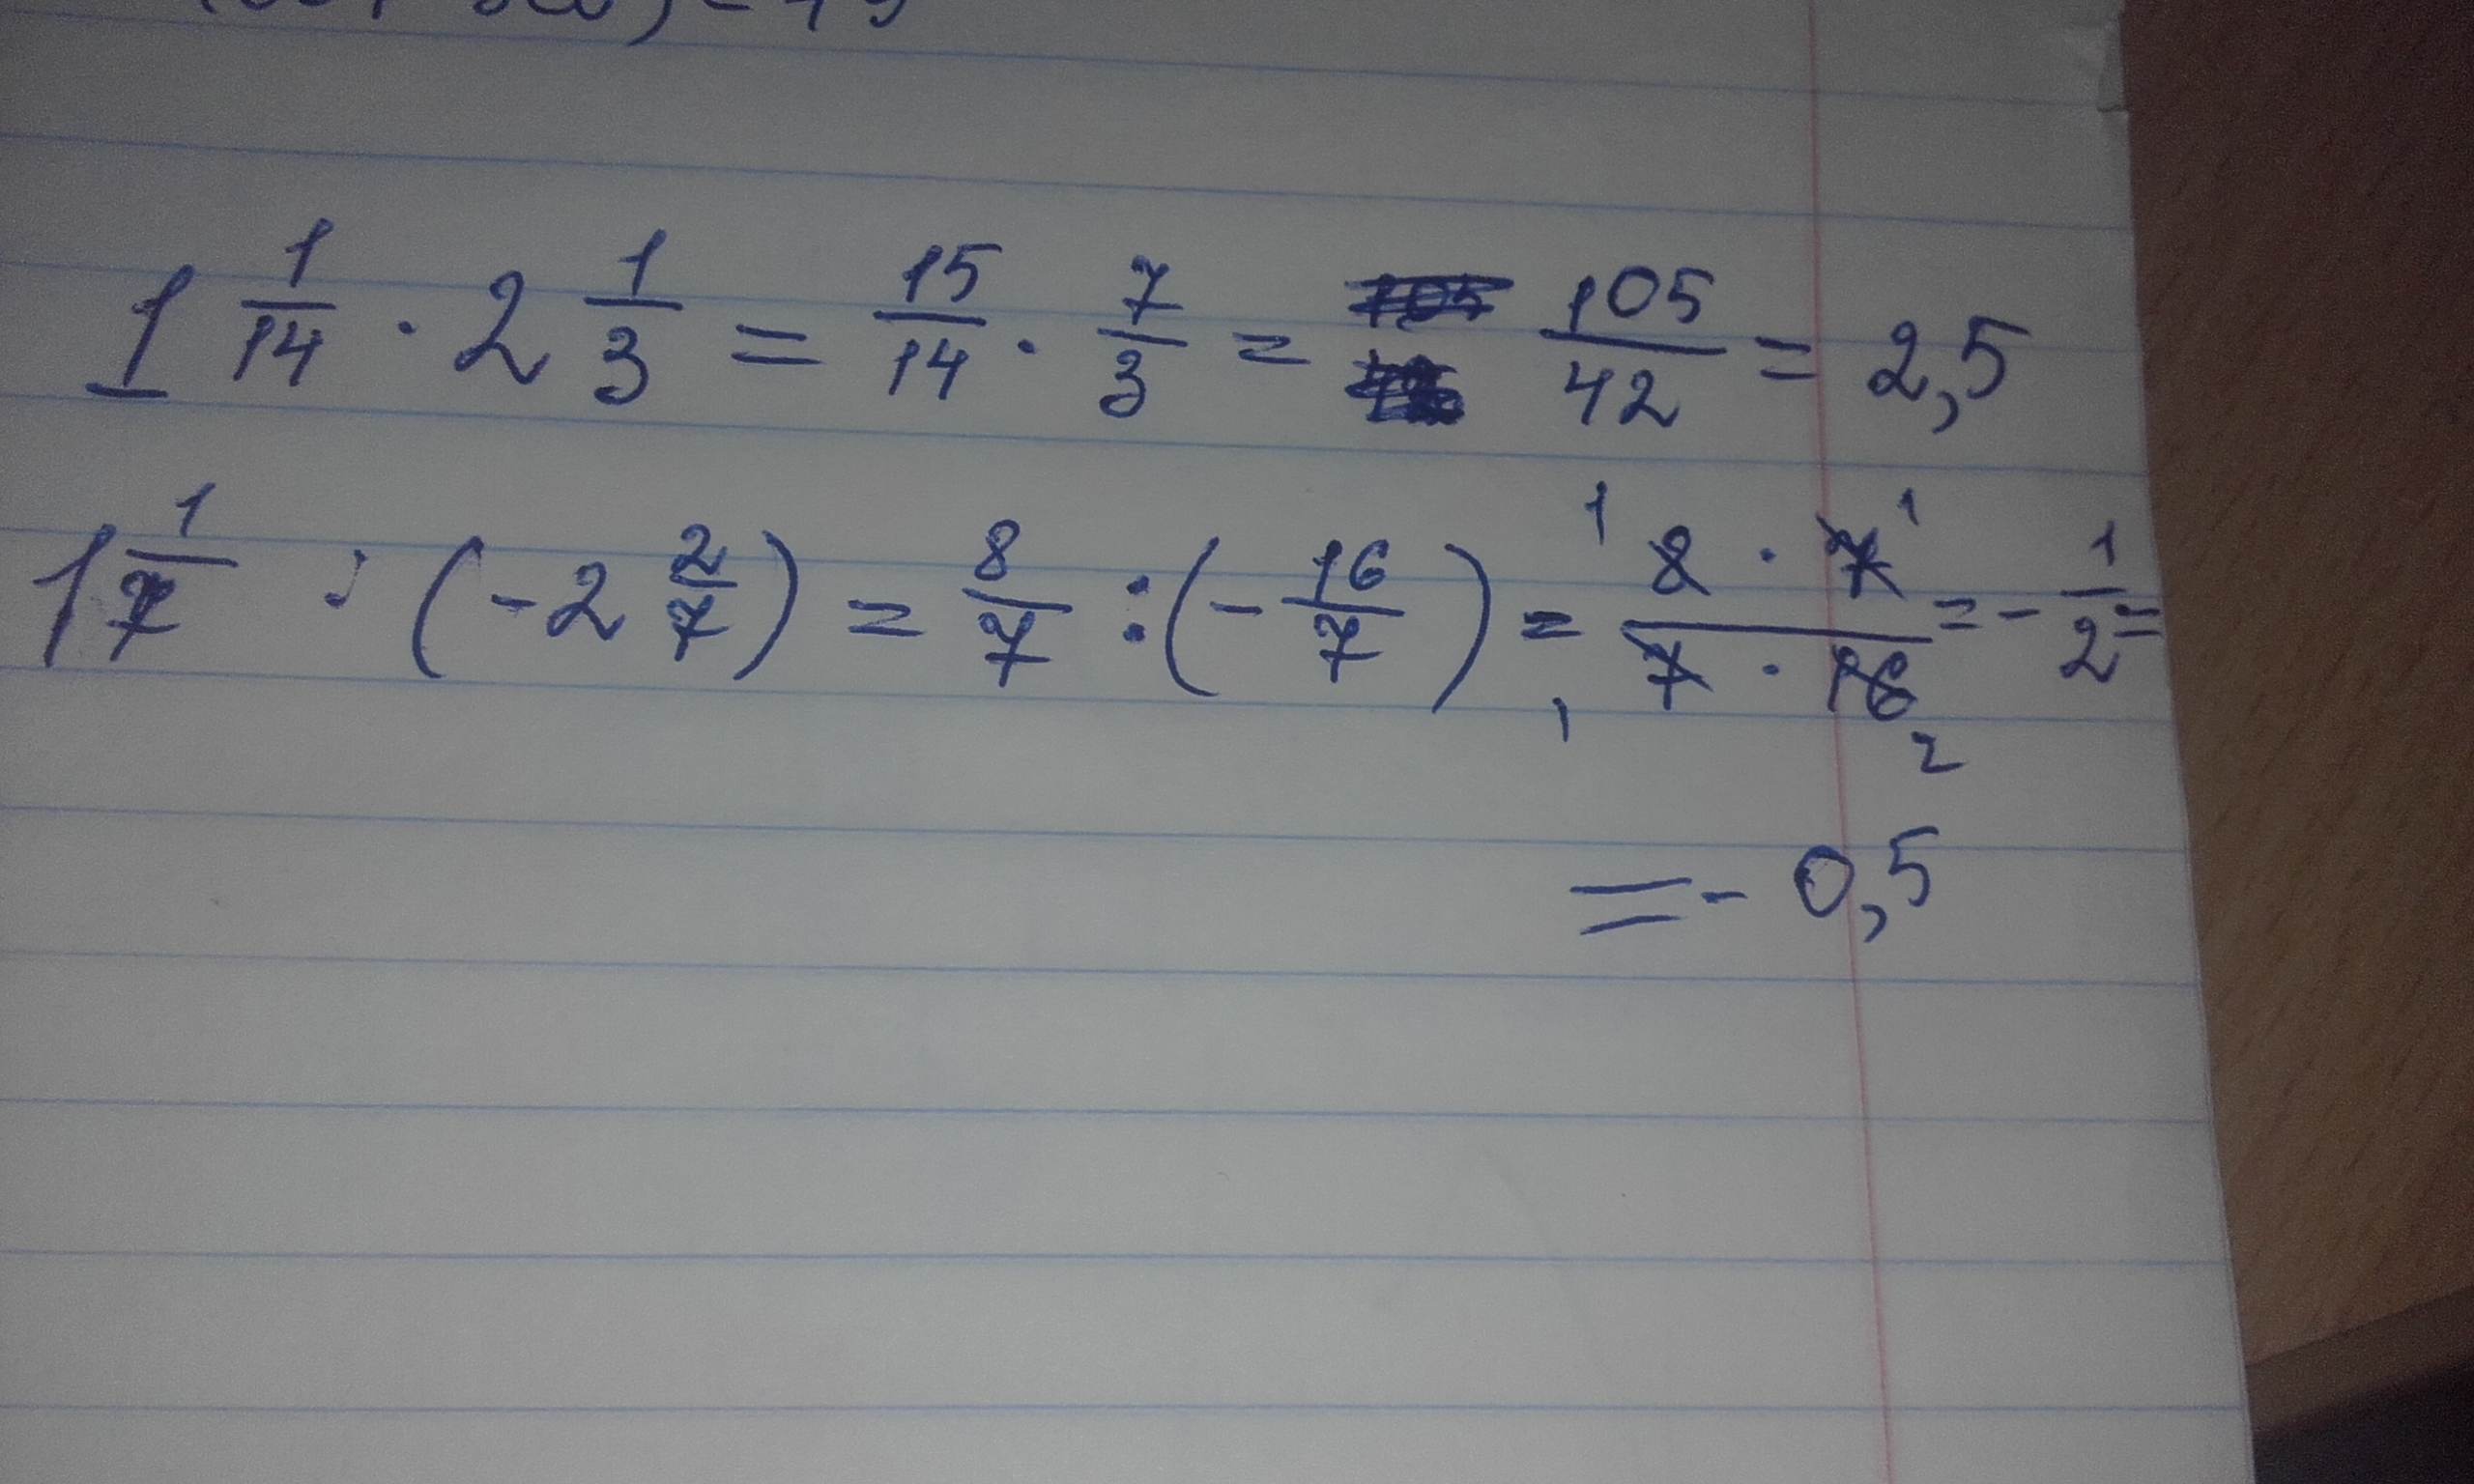 1 1/14 · 2 1/3 = 15/14 · 7/3 = 105/42 = 2,5
1 1/7 : (-2 2/7) = 8/7 : (-16/7) = 1 8 · 7 1 / 1 7 · 16 2 = - 1/2 =
= - 0,5